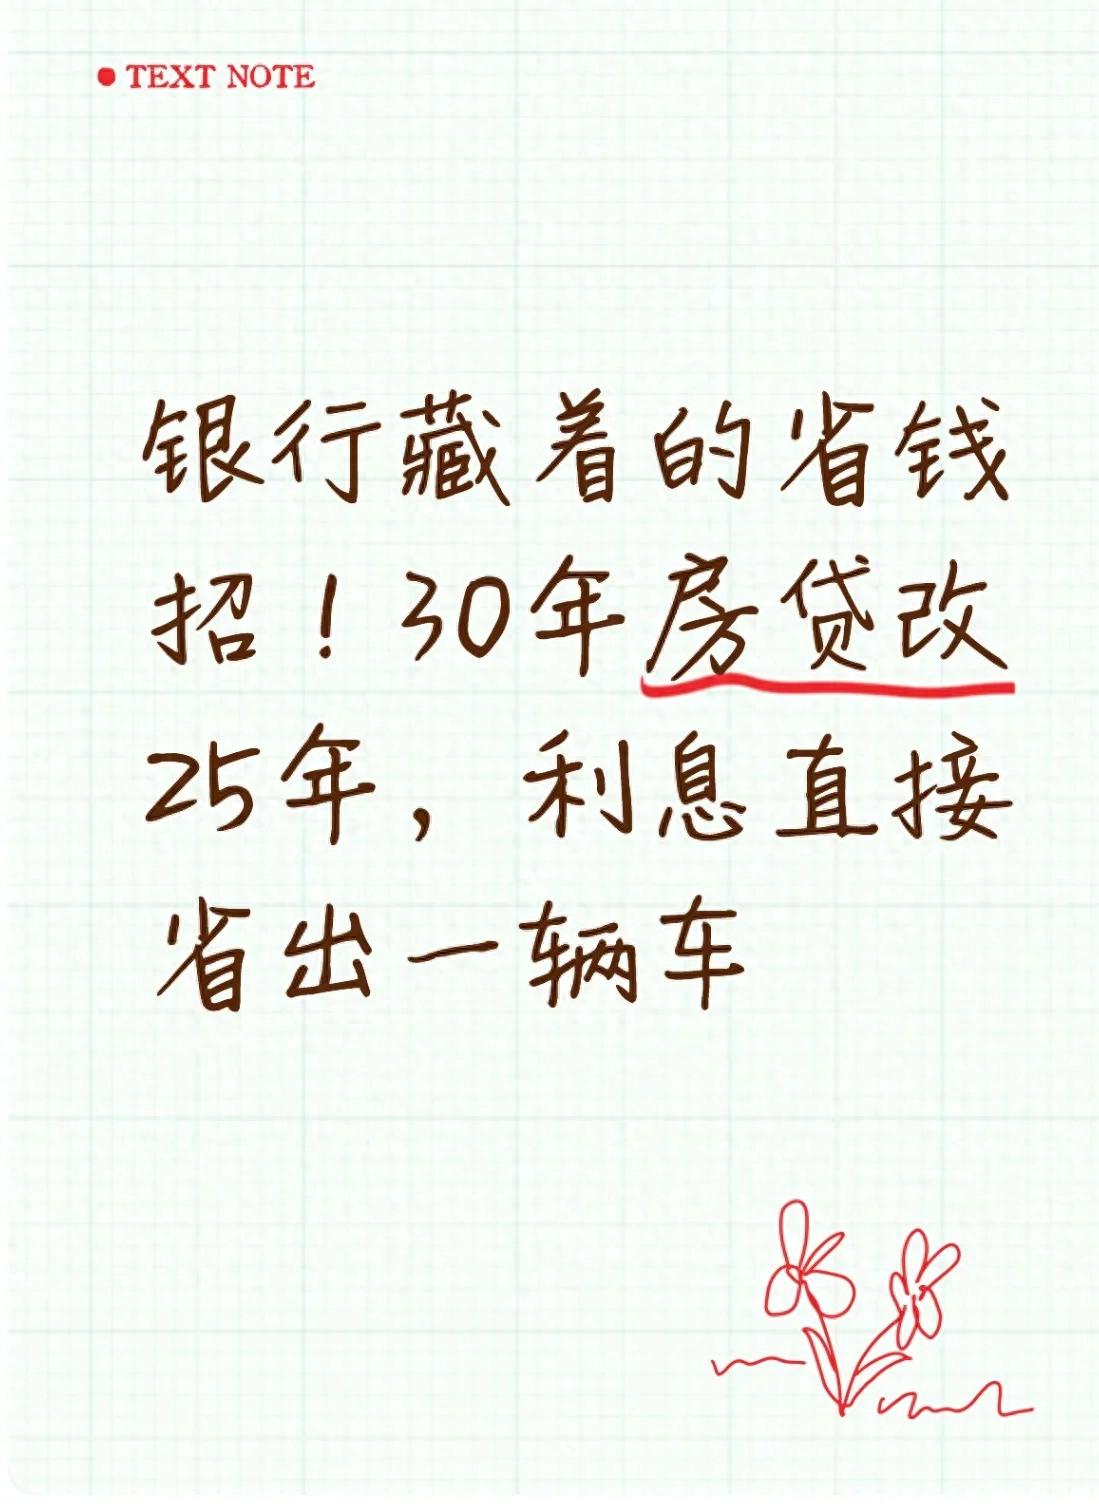 TEXT NOTE
银行藏着的省钱
招！30年房贷改
25年，利息直接
省出一辆车